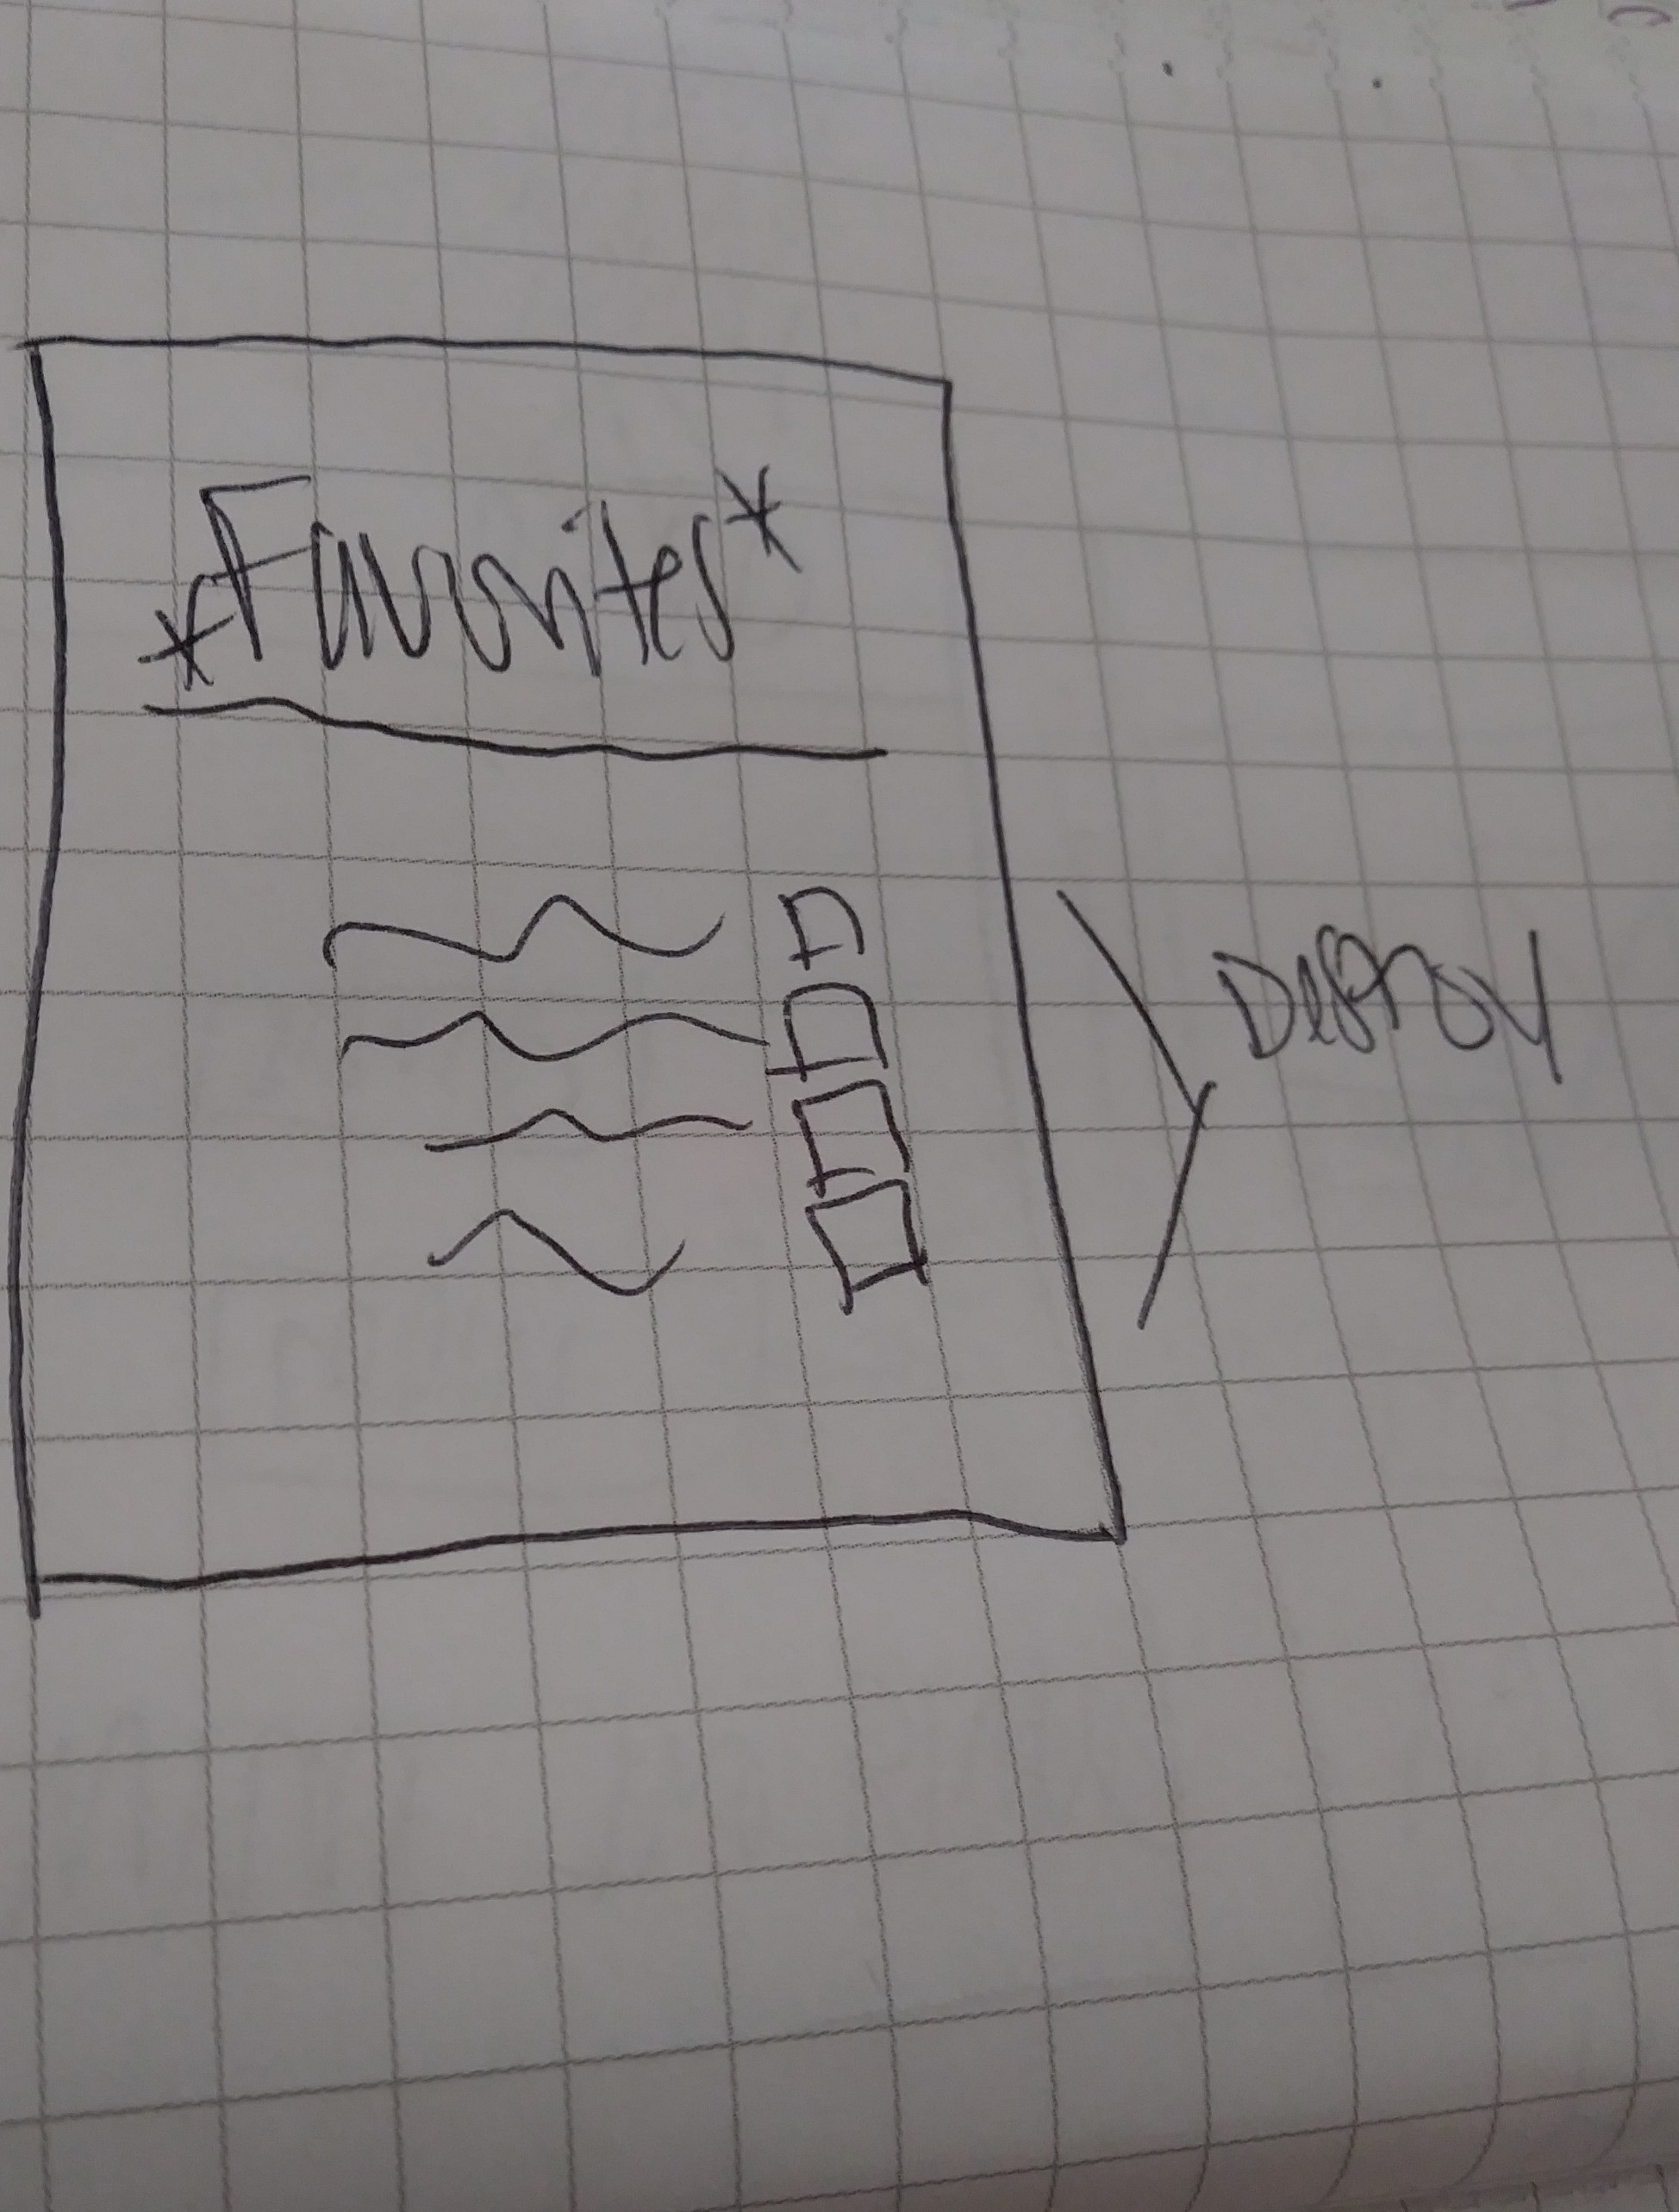 *Favorites*
Destroy